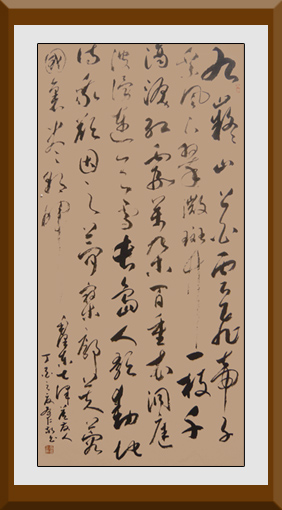 九嶷山上白雲飛帝子
乘風下翠微斑竹一枝千
滴淚紅霞萬朵百重衣洞庭
波涌連天雪長島人歌動地
詩我欲因之夢寥廓芙蓉
國裏盡朝暉
毛澤東七律答友人